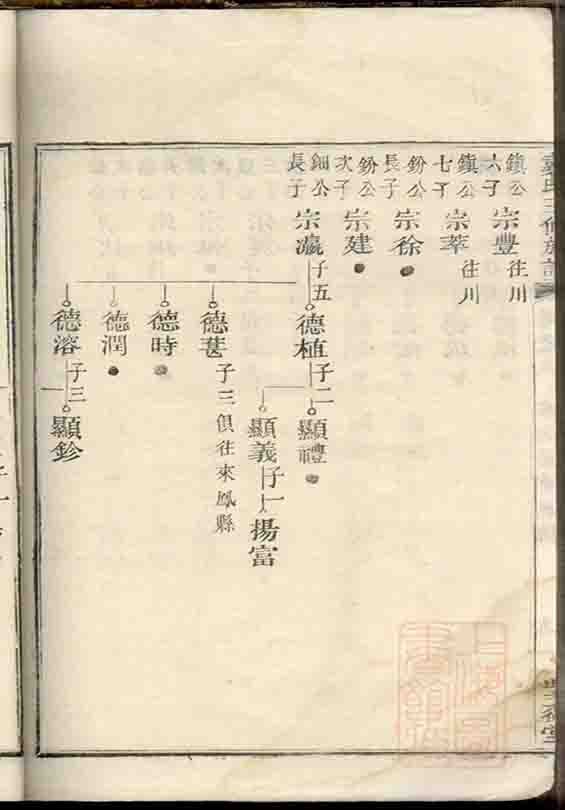 鎮公六子宗豐往川
鎮公七子宗萃往川
鈖公長子宗徐
鈖公次子宗建
鈿公長子宗瀛子五
德植子二
顯禮
顯義子一
揚富
德葚子三俱往來鳳縣
德時
德潤
德溶子三
顯鉁